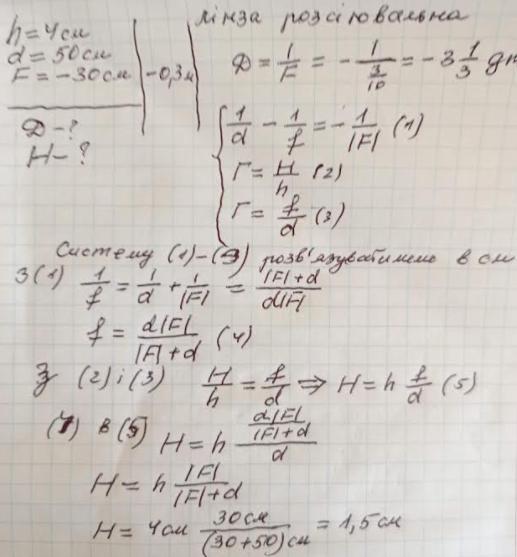 h = 4 см
d = 50 см
F = -30 см | -0,3 м
Д - ?
H - ?
лінза розсіювальна
Д = 1/F = - 1/(3/10) = - 3 1/3 дп
1/d - 1/f = - 1/|F| (1)
Г = H/h (2)
Г = f/d (3)
Систему (1)-(3) розв'язуватимемо в см
З (1) 1/f = 1/d + 1/|F| = (|F| + d)/(d|F|)
f = d|F|/(|F| + d) (4)
З (2) і (3) H/h = f/d ⇒ H = h f/d (5)
(4) в (5) H = h (d|F|/(|F| + d))/d
H = h |F|/(|F| + d)
H = 4 см 30 см/((30+50) см) = 1,5 см